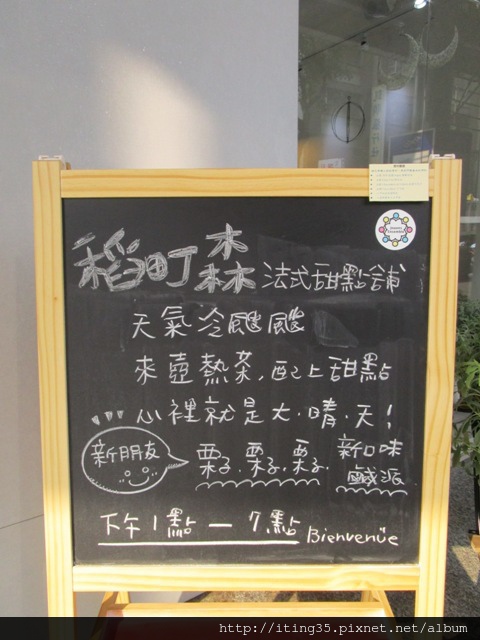 稻町森 法式甜點舖
天氣冷颼颼
來壺熱茶,配上甜點
心裡就是大.晴.天!
新朋友 栗子.栗子.栗子. 新口味
鹹派
下午1點—7點 Bienvenüe
http://iting35.pixnet.net/album